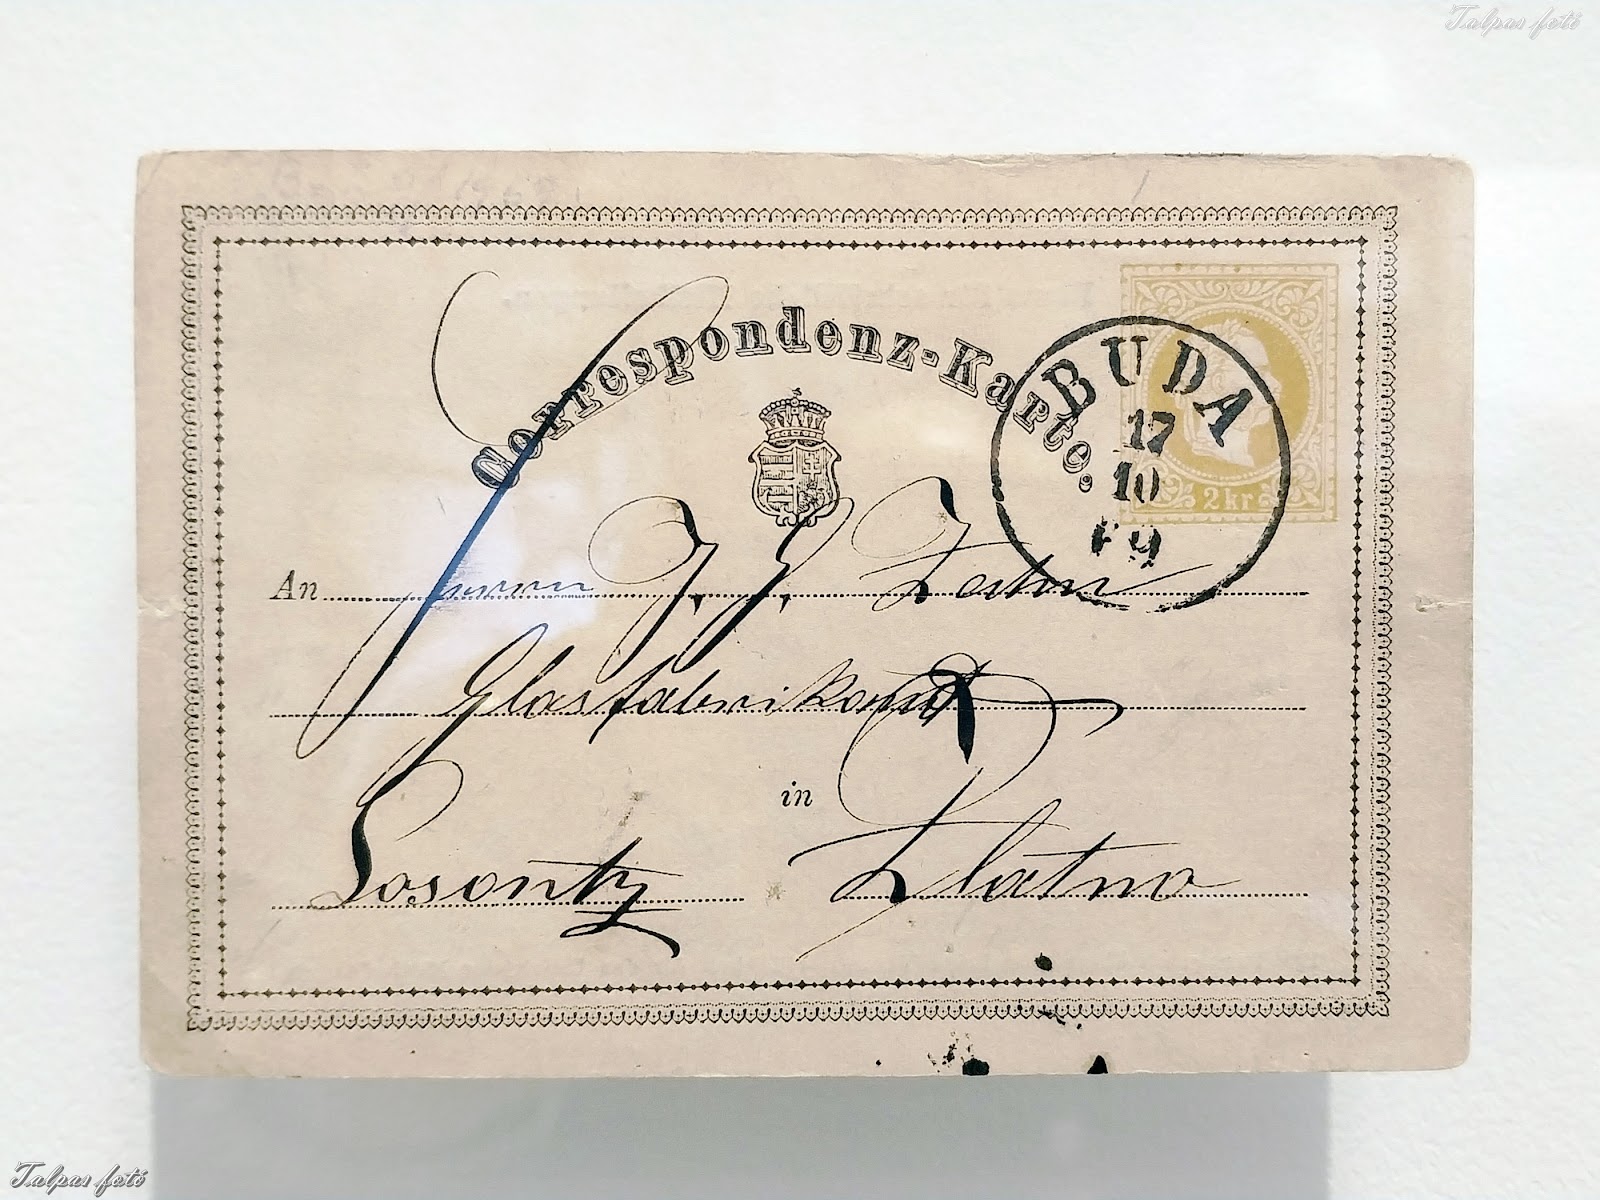 Talpas fotó
Correspondenz-Karte.
2 kr
BUDA
17
10
69
An Herrn J. G. Zahn
Glasfabrikant
in
Losontz Zlatno
Talpas fotó